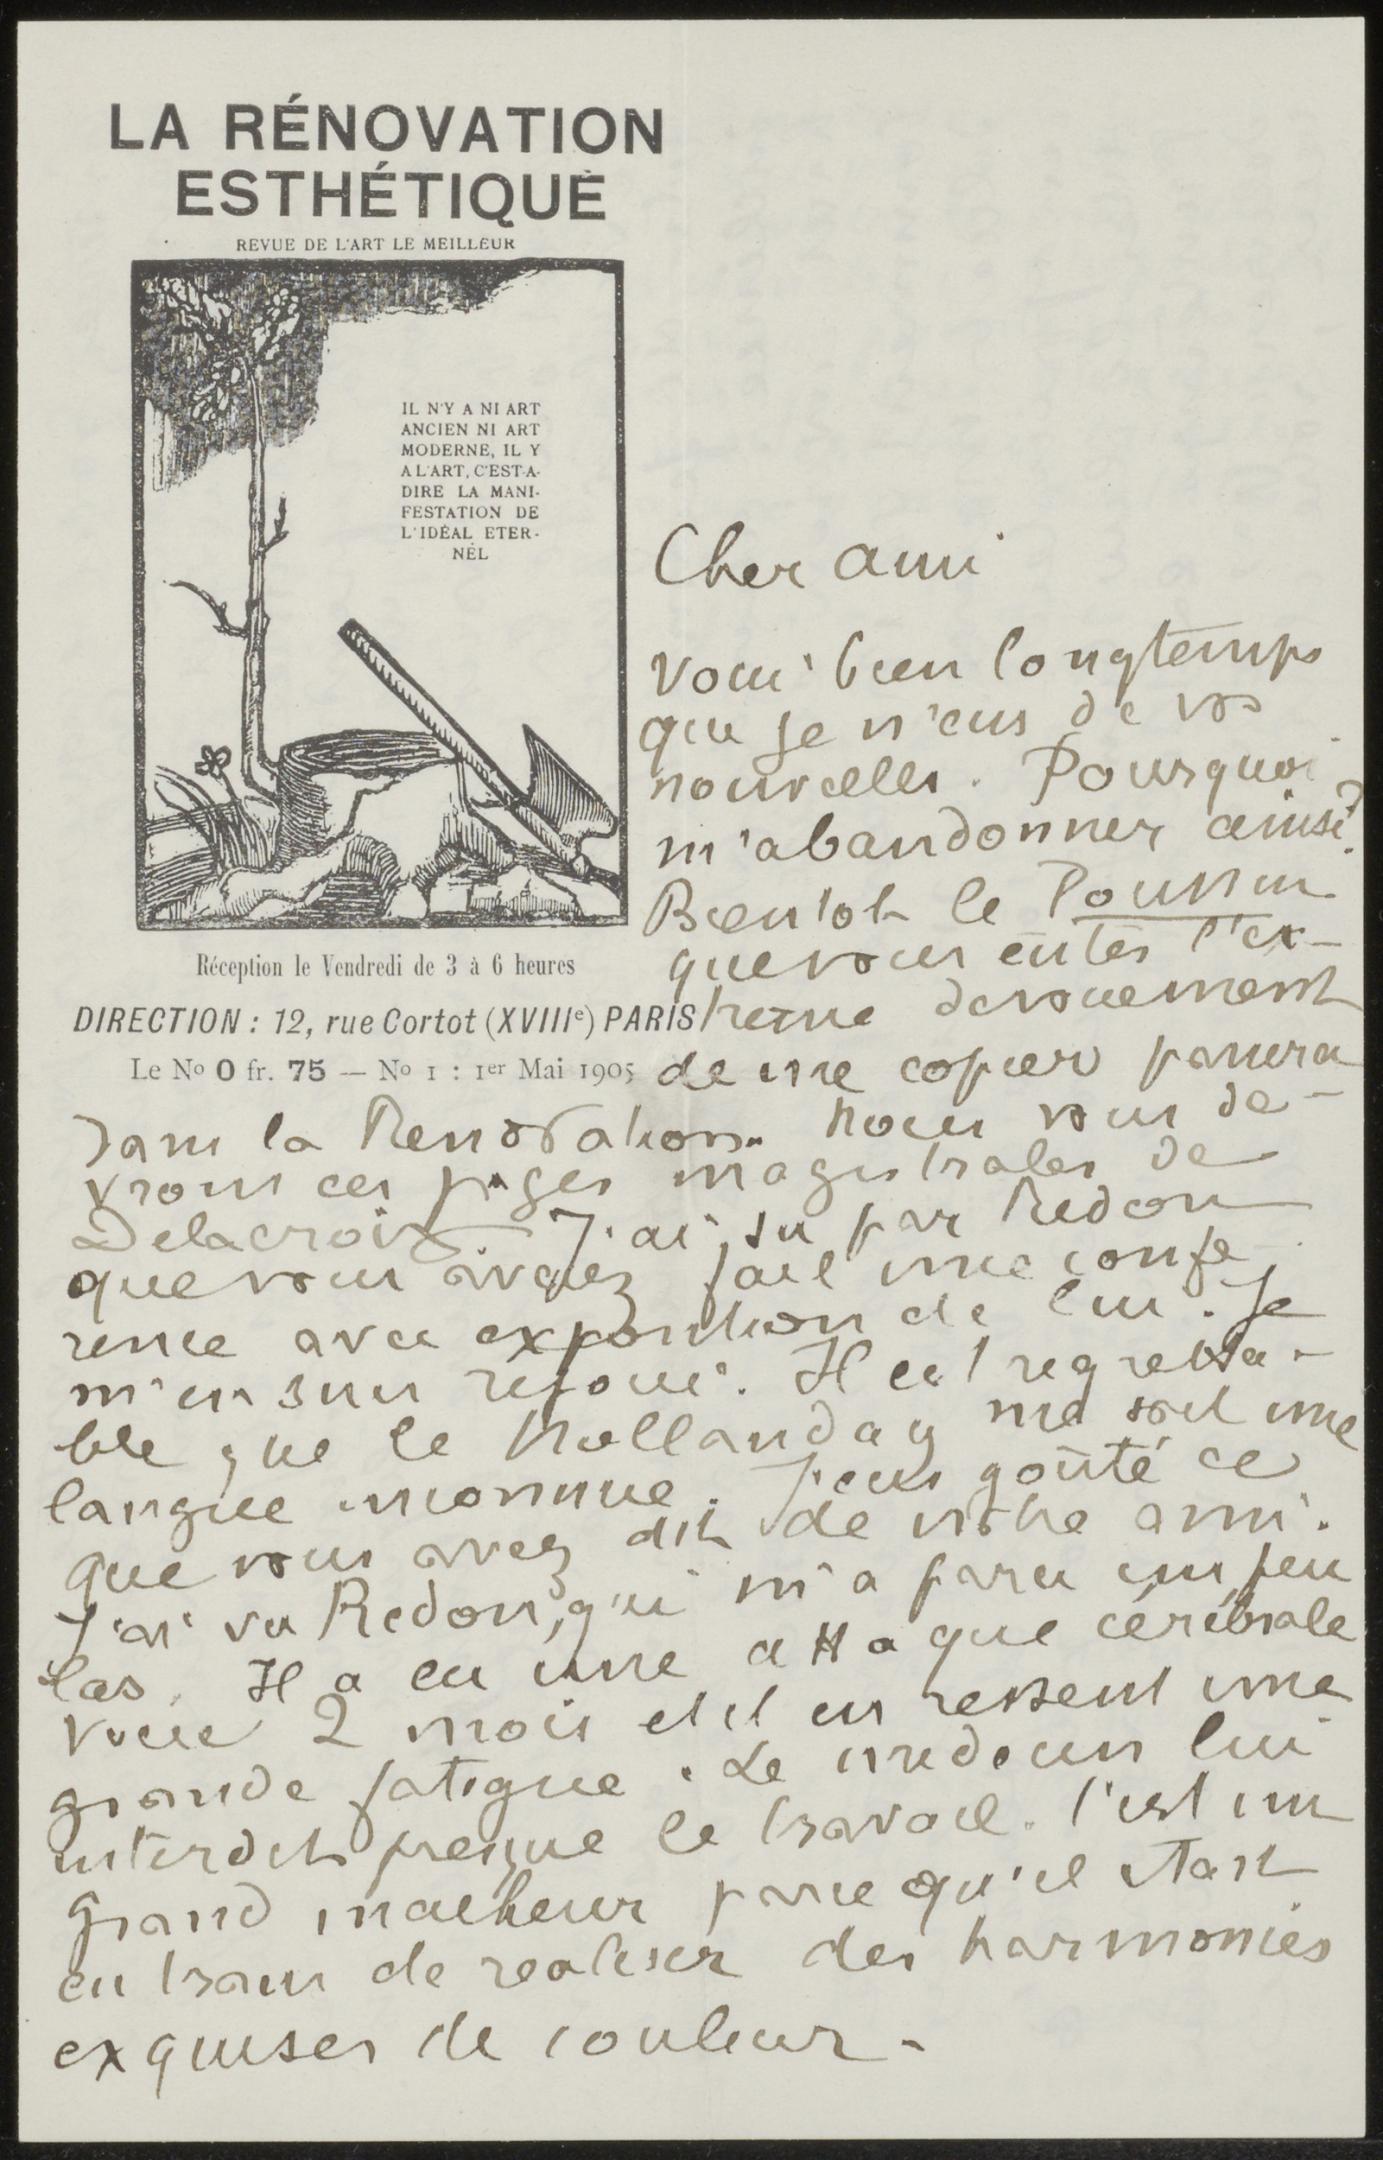 LA RÉNOVATION
ESTHÉTIQUE
REVUE DE L'ART LE MEILLEUR
IL N'Y A NI ART
ANCIEN NI ART
MODERNE, IL Y
A L'ART, C'EST-A-
DIRE LA MANI-
FESTATION DE
L'IDÉAL ETER-
NEL
Réception le Vendredi de 3 à 6 heures
DIRECTION : 12, rue Cortot (XVIIIe) PARIS
Le No 0 fr. 75 — No 1 : 1er Mai 1905
Cher ami
Voici bien longtemps
que je n'eus de vos
nouvelles. Pourquoi
m'abandonner ainsi?
Bientot le Poussin
que vous eûtes l'ex-
treme devouement
de me copier paraitra
dans la Renovation. Nous vous de-
vrons ces pages magistrales de
Delacroix. J'ai su par Redon
que vous aviez fait une confe-
rence avec exposition de lui. Je
m'en suis rejoui. Il est regretta-
ble que le hollanday me soit une
langue inconnue. J'eus goûté ce
que vous avez dit de notre ami.
J'ai vu Redon, qui m'a paru un peu
las. Il a eu une attaque cérébrale
voici 2 mois et il en ressent une
grande fatigue. Le medecin lui
interdit presque le travail. C'est un
grand malheur parce qu'il etait
en train de realiser des harmonies
exquises de couleur.